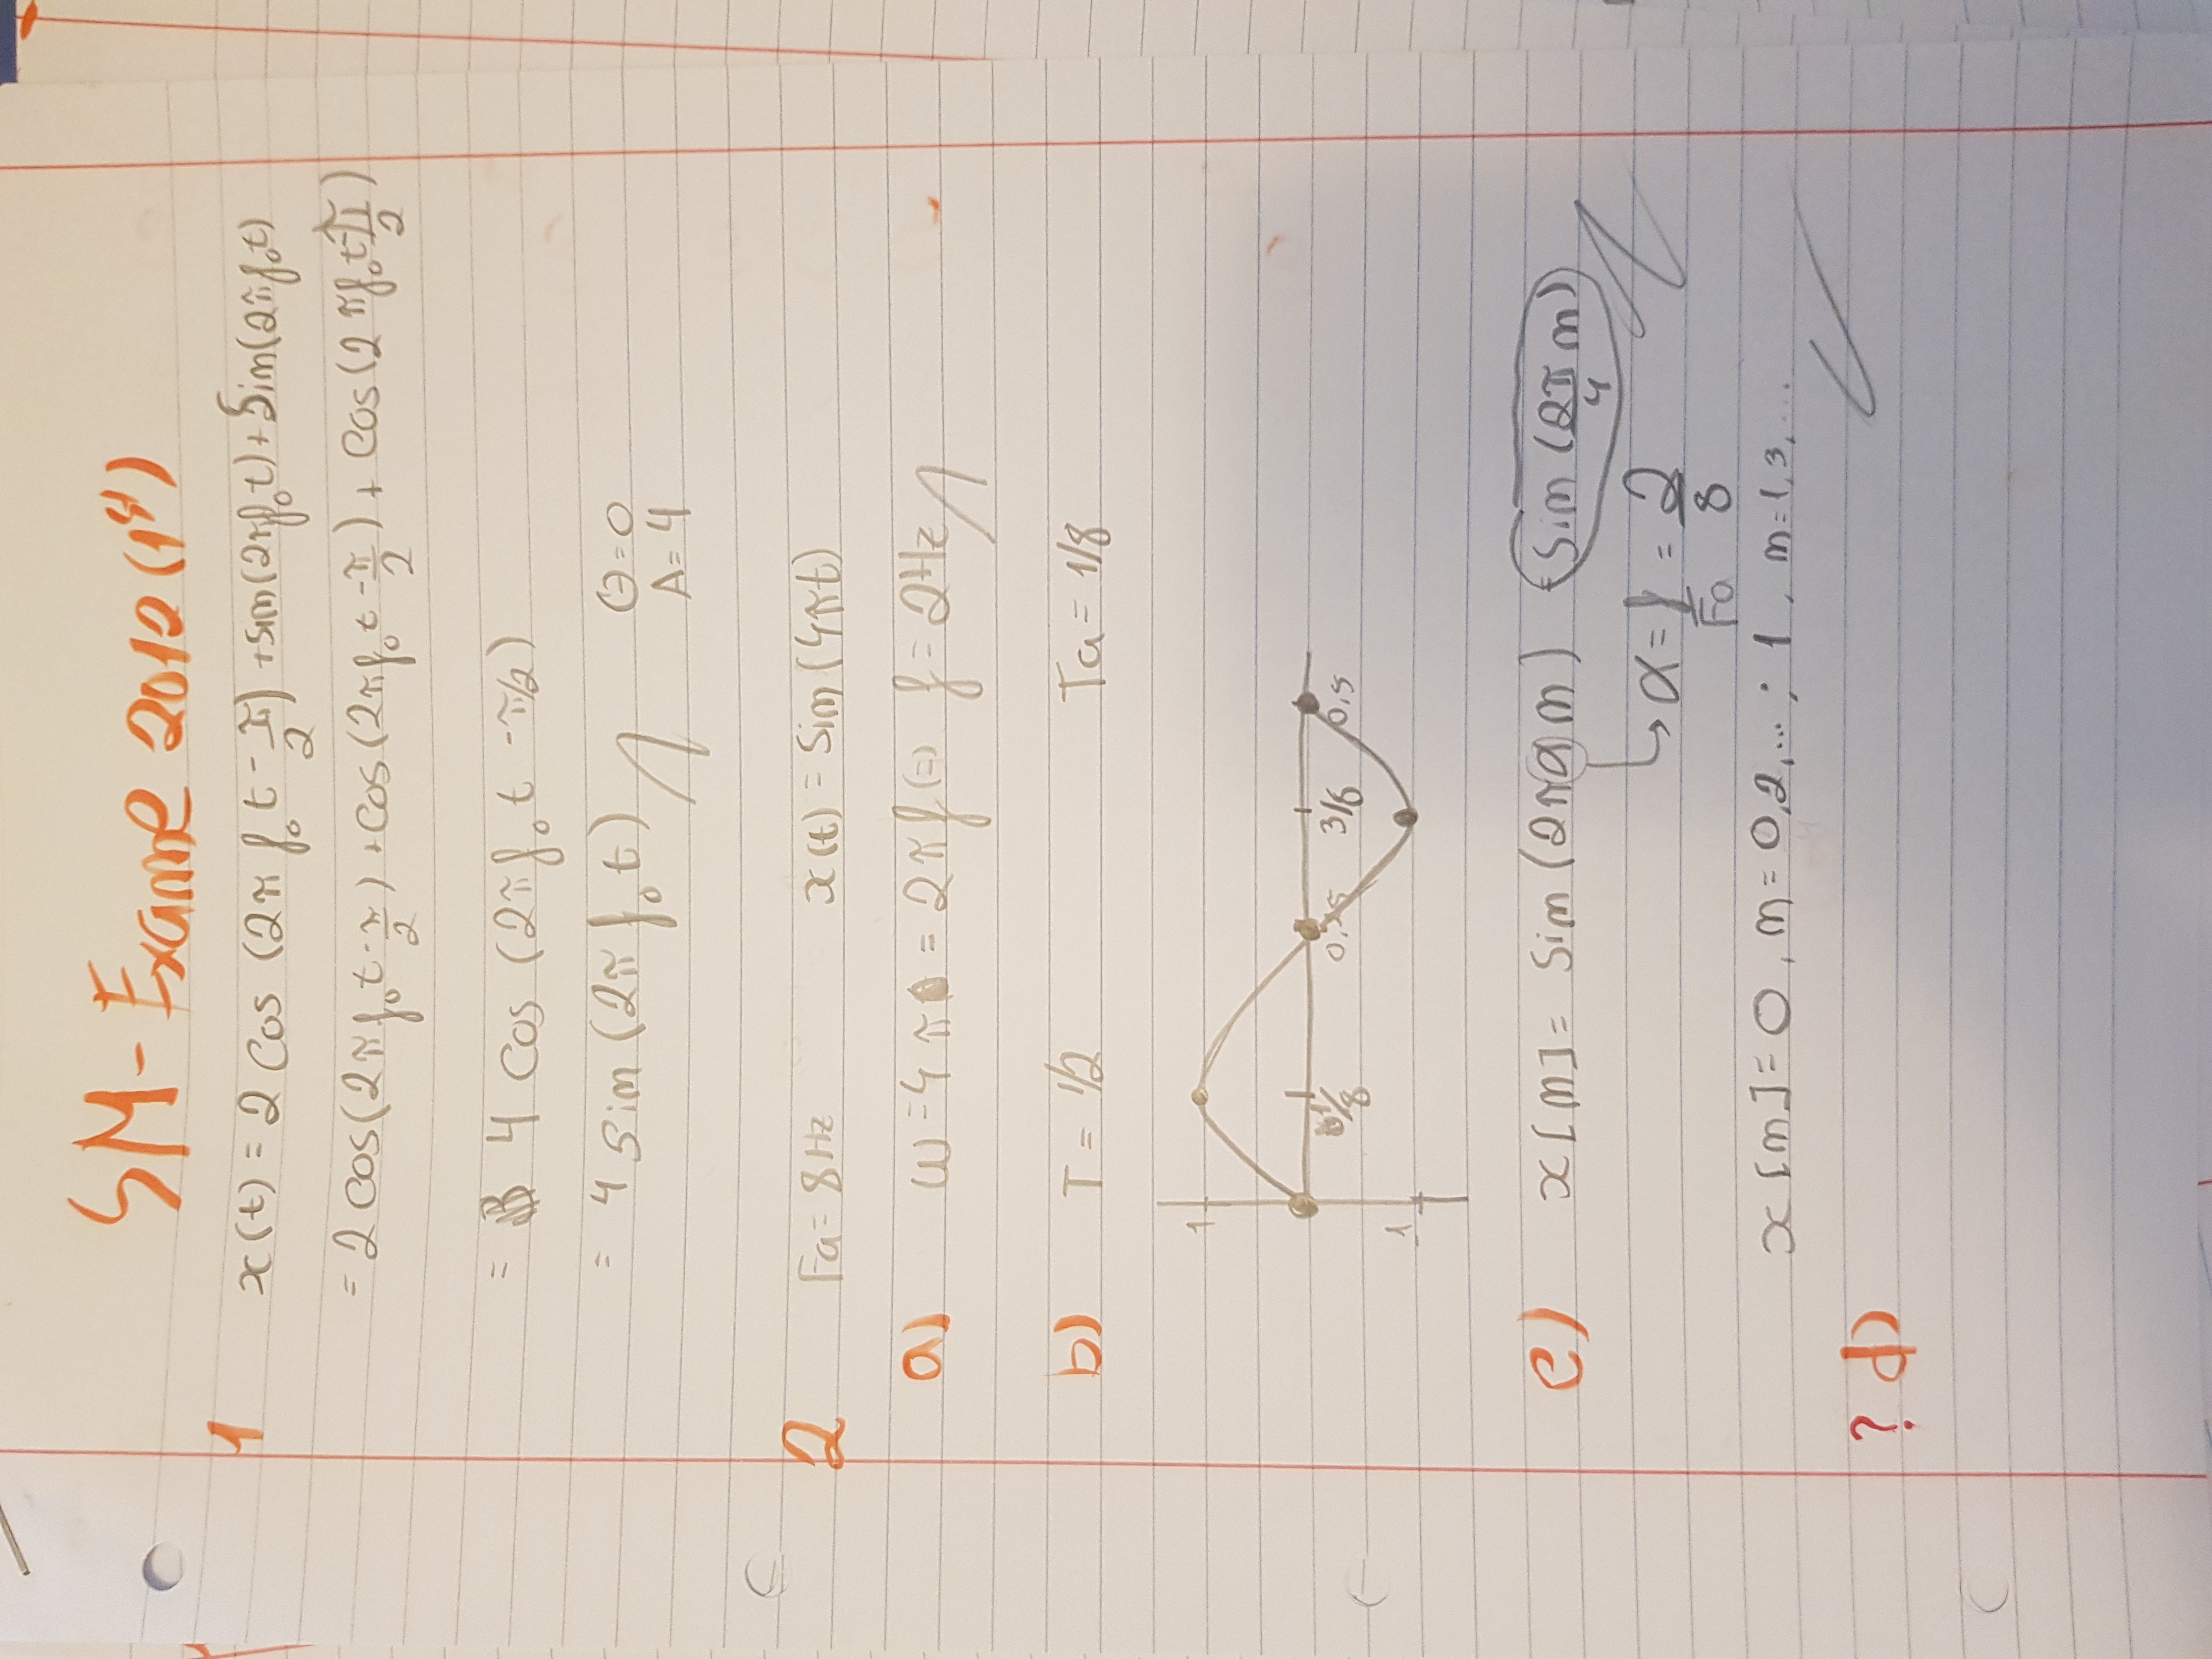 SM - Exame 2012 (1ª)
1 x(t) = 2 cos (2π f₀ t - π/2) + sin(2πf₀t) + Sin(2πf₀t)
= 2 cos(2πf₀t - π/2) + cos(2πf₀t - π/2) + cos(2πf₀t - π/2)
= 4 cos (2πf₀t - π/2)
= 4 sin (2π f₀ t) Θ = 0
A = 4
2 Fa = 8Hz x(t) = sin(4πt)
a) ω = 4π = 2πf (=) f = 2Hz
b) T = 1/2 Ta = 1/8
1
1/8 0,25 3/8 0,5
-1
c) x[n] = sin(2παn) = sin(2π/4 n)
↳ α = f/Fa = 2/8
x[n] = 0, n = 0,2,... ; 1, n = 1,3,...
? d)